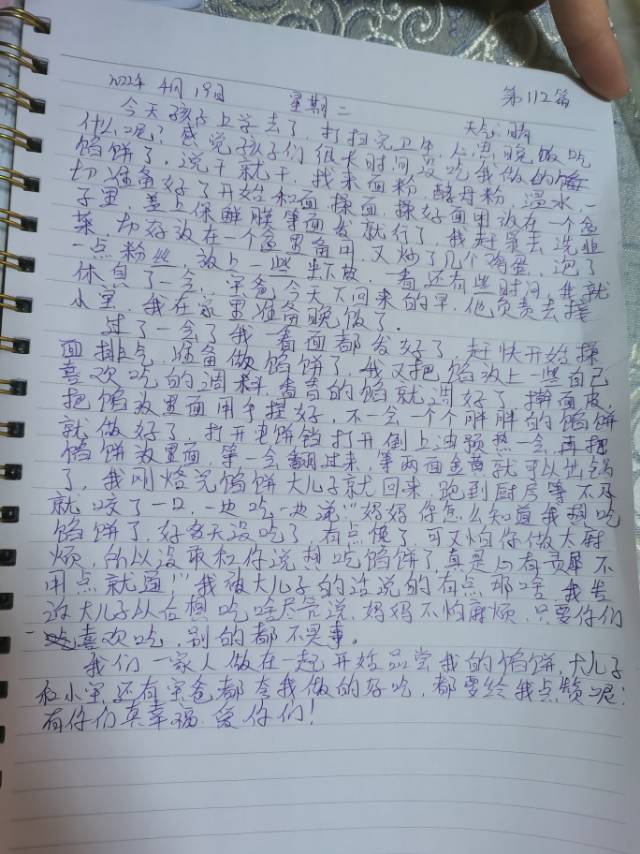 2022年4月19日 星期二 第112篇
天气:晴
今天孩子上学去了,打扫完卫生,心思晚饭吃
什么呢?感觉孩子们很长时间没吃我做的馅
馅饼了,说干就干,找来面粉,酵母粉,温水,一
切准备好了开始和面揉面,揉好面团放在一个盆
子里,盖上保鲜膜等面发就行了,我赶紧去洗韭
菜,切好放在一个盆里备用,又炒了几个鸡蛋,泡了
一点粉丝,放上一些虾皮,一看还有些时间,我就
休息了一会,宋爸今天下回来的早,他负责去接
小军,我在家里准备晚饭了.
过了一会了我一看面都发好了,赶快开始揉
面排气,准备做馅饼了,我又把馅放上一些自己
喜欢吃的调料,香香的馅就调好了,擀面皮,
把馅放里面用手捏好,不一会一个个胖胖的馅饼
就做好了,打开电饼铛打开倒上油预热一会,再把
馅饼放里面,等一会翻过来,等两面金黄就可以出锅
了,我刚烙完馅饼大儿子就回来,跑到厨房等不及
就咬了一口,一边吃一边说"妈妈你怎么知道我想吃
馅饼了,好多天没吃了,有点馋了,可又怕你做太麻
烦,所以没敢和你说想吃馅饼了,真是心有灵犀不
用点就通!"我被大儿子的话说的有点那啥,我告
诉大儿子以后想吃啥尽管说,妈妈不怕麻烦,只要你们
喜欢吃,别的都不是事。
我们一家人做在一起开始品尝我的馅饼,大儿子
和小军,还有宋爸都夸我做的好吃,都要给我点赞呢!
有你们真幸福,爱你们!